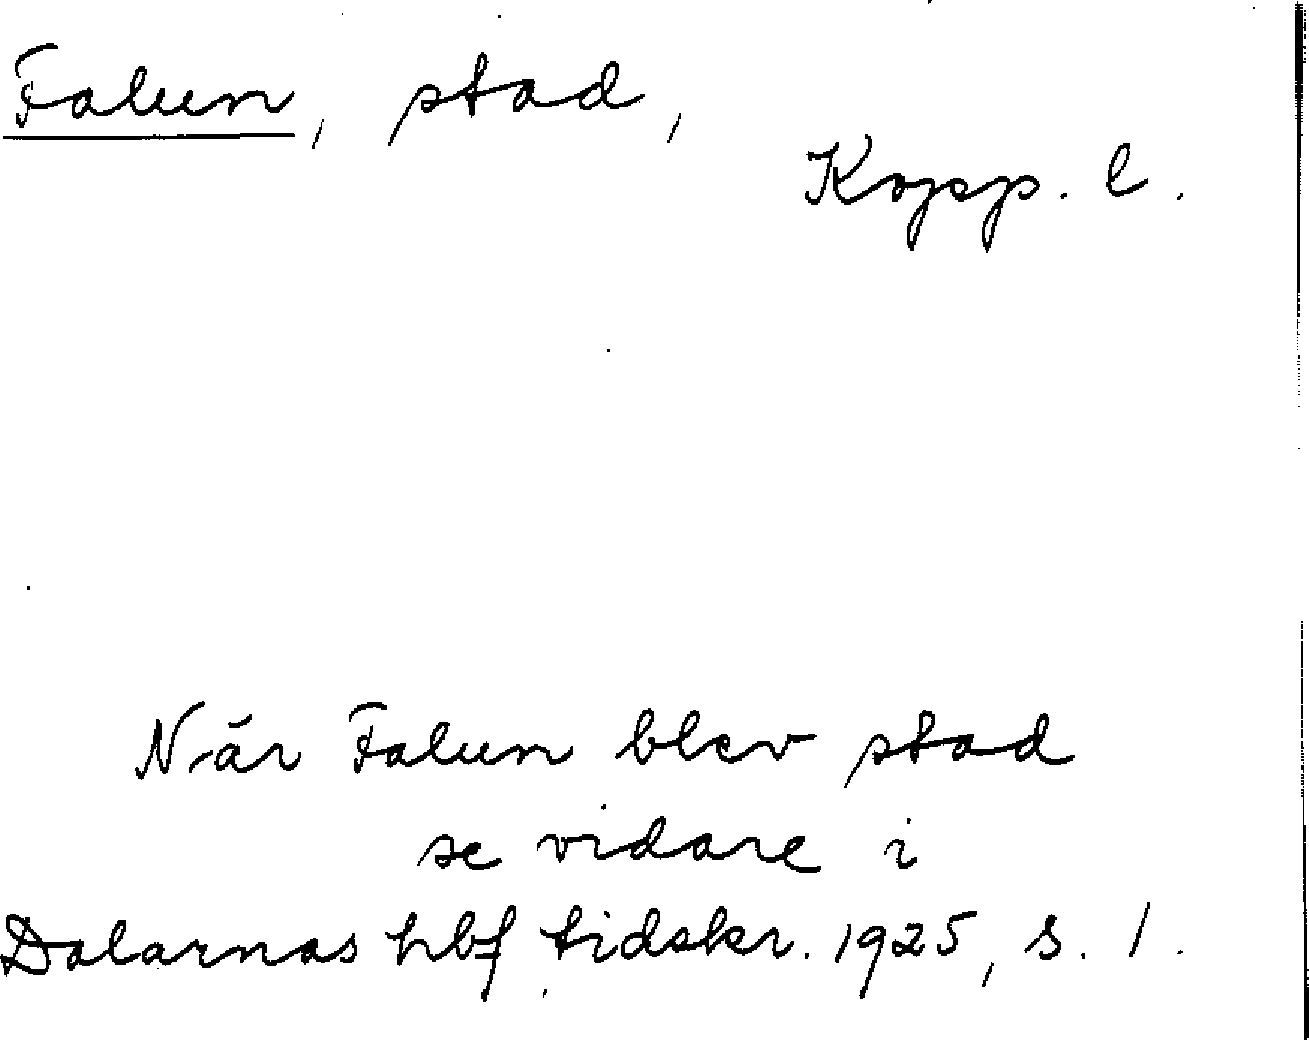 Falun, stad,
Kopp. l.
När Falun blev stad
se vidare i
Dalarnas hbf tidskr. 1925, s. 1.